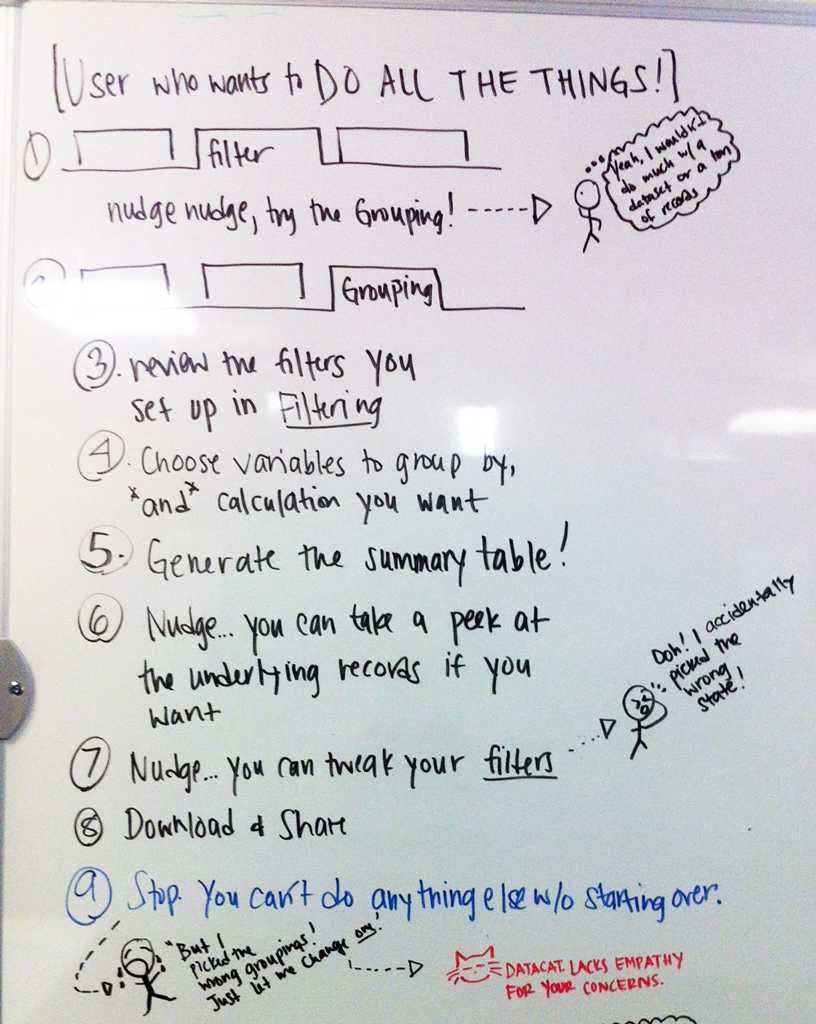 [User who wants to DO ALL THE THINGS!]
1
filter
Yeah, I wouldn't
do much w/a
dataset or a ton
of records
nudge nudge, try the Grouping!
2
Grouping
3. review the filters you
set up in Filtering
4. Choose variables to group by,
*and* calculation you want
5. Generate the summary table!
6 Nudge... you can take a peek at
the underlying records if you
want
Doh! I accidentally
picked the
wrong
state!
7 Nudge... you can tweak your filters
8 Download & Share
9 Stop. You can't do anything else w/o starting over.
"But I
picked the
wrong groupings!
Just let me change one!
DATACAT LACKS EMPATHY
FOR YOUR CONCERNS.